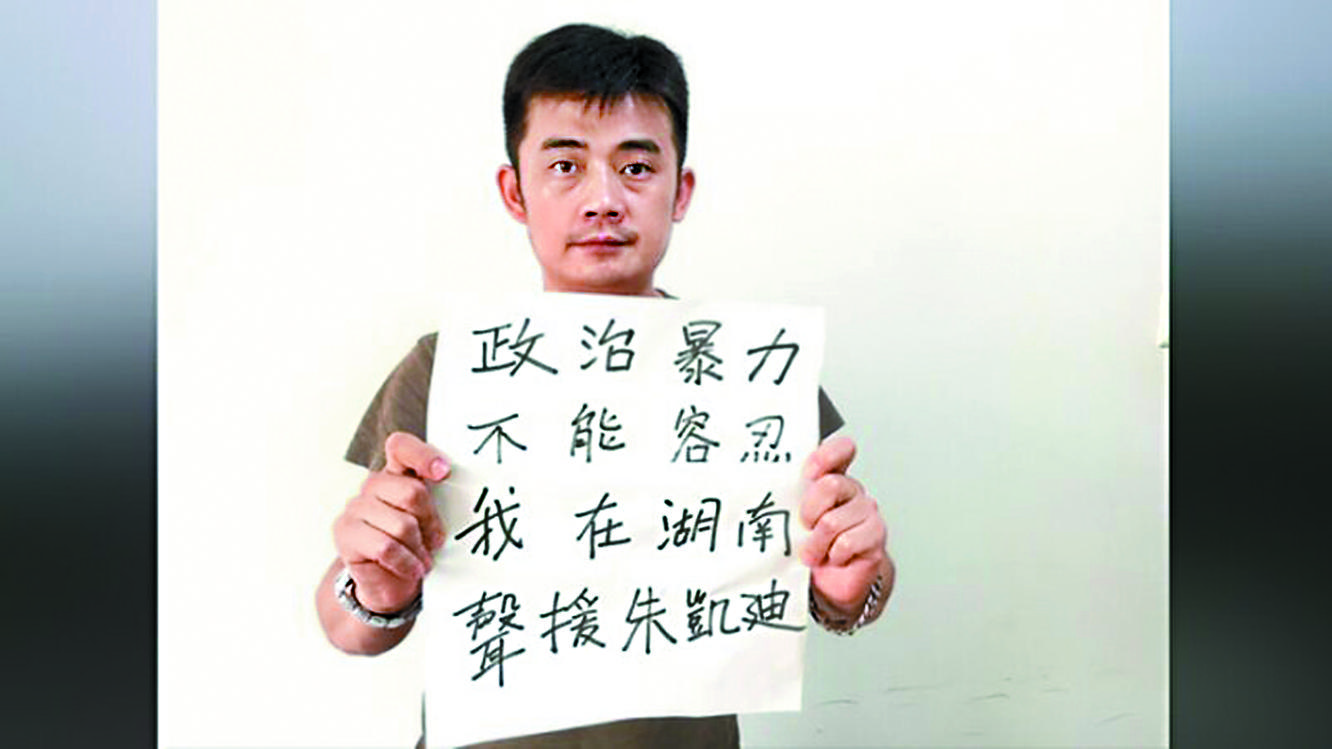 政治暴力
不能容忍
我在湖南
聲援朱凱廸